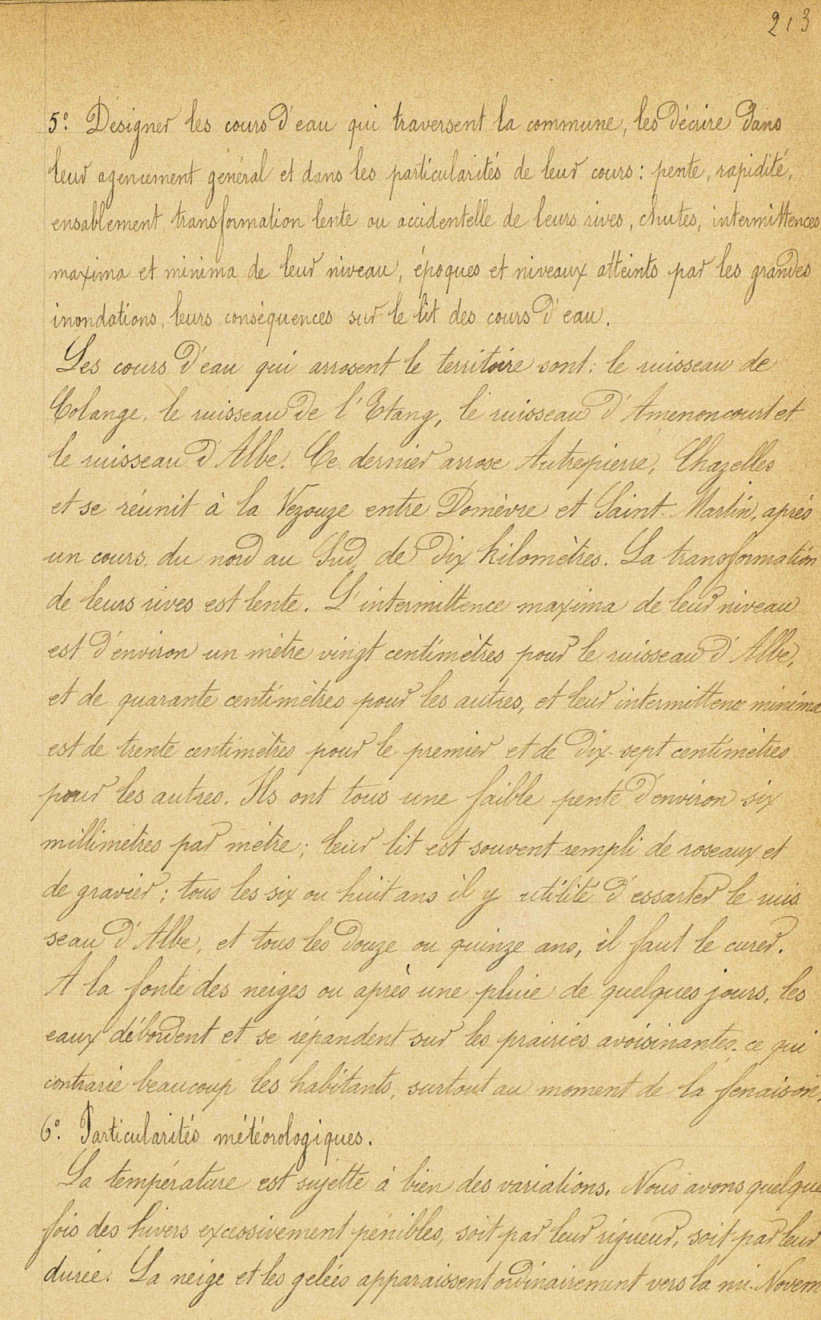 213
5° Désigner les cours d'eau qui traversent la commune, les décrire dans
leur agencement général et dans les particularités de leur cours : pente, rapidité,
ensablement, transformation lente ou accidentelle de leurs rives, chutes, intermittences
maxima et minima de leur niveau, époques et niveaux atteints par les grandes
inondations, leurs conséquences sur le lit des cours d'eau.
Les cours d'eau qui arrosent le territoire sont : le ruisseau de
Colange, le ruisseau de l'Etang, le ruisseau d'Amenoncourt et
le ruisseau d'Albe. Ce dernier arrose Autrepierre, Chazelles
et se réunit à la Vezouze entre Domèvre et Saint-Martin, après
un cours du nord au Sud de dix kilomètres. La transformation
de leurs rives est lente. L'intermittence maxima de leur niveau
est d'environ un mètre vingt centimètres pour le ruisseau d'Albe,
et de quarante centimètres pour les autres, et leur intermittence minima
est de trente centimètres pour le premier et de dix-sept centimètres
pour les autres. Ils ont tous une faible pente d'environ six
millimètres par mètre ; leur lit est souvent rempli de roseaux et
de gravier ; tous les six ou huit ans il y utilité d'essarter le ruis
seau d'Albe, et tous les douze ou quinze ans, il faut le curer.
A la fonte des neiges ou après une pluie de quelques jours, les
eaux débordent et se répandent sur les prairies avoisinantes, ce qui
contrarie beaucoup les habitants, surtout au moment de la fenaison.
6° Particularités météorologiques.
La température est sujette à bien des variations. Nous avons quelque
fois des hivers excessivement pénibles, soit par leur rigueur, soit par leur
durée. La neige et les gelées apparaissent ordinairement vers la mi-Novem